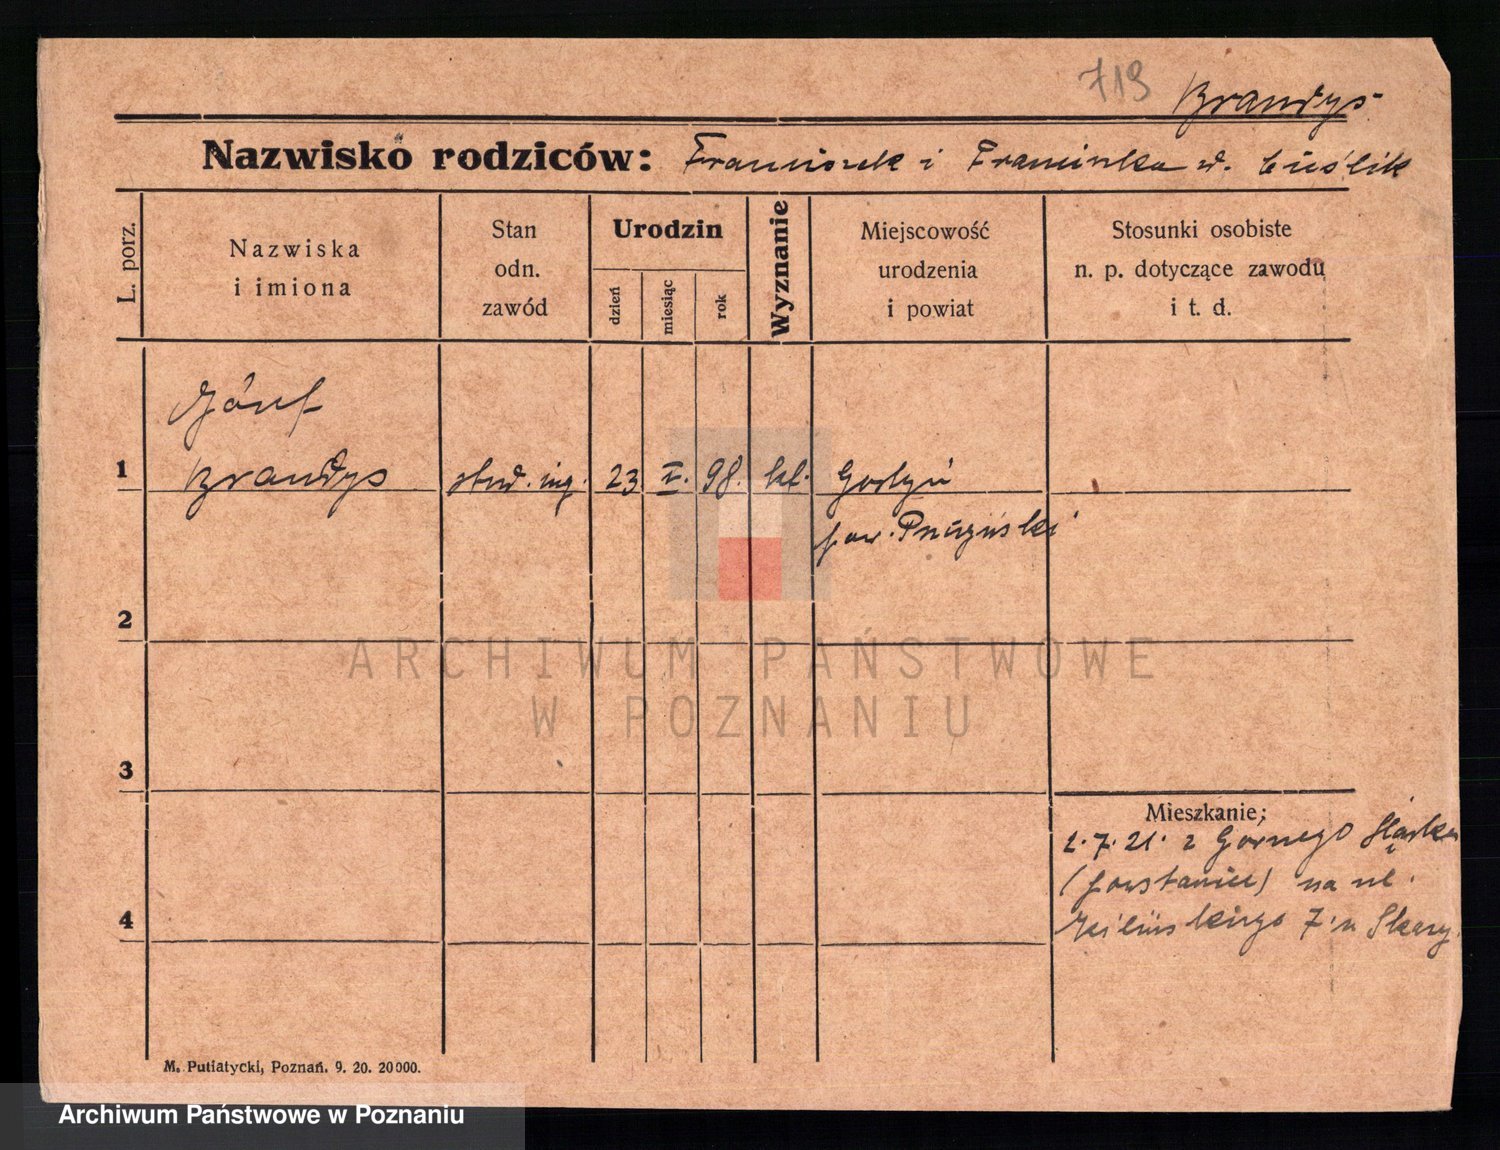 719
Brandys
Nazwisko rodziców: Franciszek i Franciszka d. Cuślik
L. porz.
Nazwiska
i imiona
Stan
odn.
zawód
Urodzin
dzień
miesiąc
rok
Wyznanie
Miejscowość
urodzenia
i powiat
Stosunki osobiste
n. p. dotyczące zawodu
i t. d.
Józef
1 Brandys stud. ing. 23 V. 98. kt.
pow. Pszczyński
2
ARCHIWUM PAŃSTWOWE
W POZNANIU
3
Mieszkanie:
2.7.21. z Górnego Śląska
(powstaniec) na ul.
Kilińskiego 7 u
4
M. Putiatycki, Poznań. 9. 20. 20000.
Archiwum Państwowe w Poznaniu